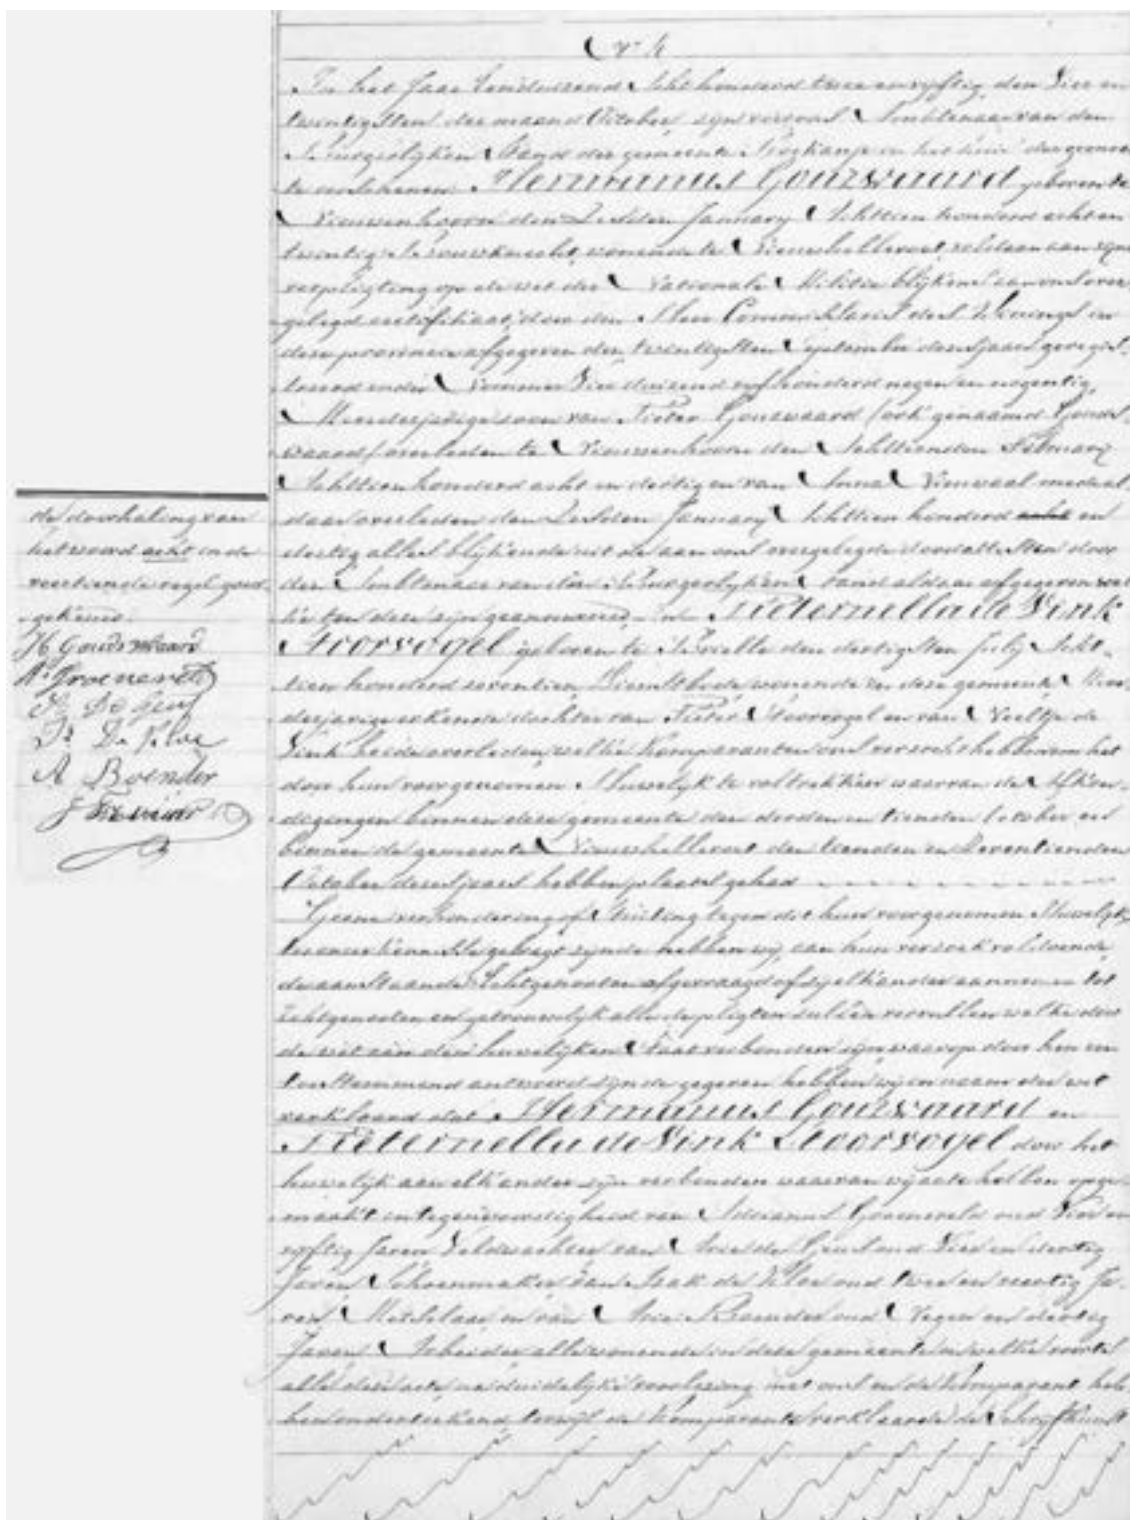 No 4
In het Jaar Een duizend Acht honderd twee en vyftig, den Vier en
twintigsten der maand October, zyn voor ons Ambtenaar van den
Burgerlijken Stand der gemeente in het huis der gemeen
te verschenen: Hermanus Gouswaard geboren te
Nieuwenhoorn den Zesden January Achttien honderd acht en
twintig Bouwknecht, wonende te Nieuwhellevoet, voldaan aan zyne
verpligting op de wet der Nationale Militie blykens aan ons over
gelegd certifikaat, door den Heer Commissaris des Konings in
deze provincie afgegeven den twintigsten September dezes Jaars geregis
treerd onder Nommer Vier duizend vyf honderd negen en negentig,
Meerderjarige zoon van Pieter Gouswaard (ook genaamd Gouds
waard) overleden te Nieuwenhoorn den Achttienden February
Achttien honderd acht en dertig en van Anna mede al
daar overleden den Zesden January Achttien honderd acht en
dertig alles blykende uit de aan ons overgelegde doodattesten door
den Ambtenaar van den Burgerlyken Stand aldaar afgegeven wel
ke ten deze zyn geannexeerd, en Pieternella de Vink
Stoorvogel geboren te Brielle den dertigsten July Acht
tien honderd zeventien, Dienstbode wonende in deze gemeente Meer
derjarige erkende dochter van Pieter Stoorvogel en van Neeltje de
Vink beide overleden, welke Komparanten ons verzocht hebben om het
door hun voorgenomen Huwelyk te voltrekken waarvan de Afkon
digingen binnen deze gemeente den derden en tienden October en
binnen de gemeente Nieuwhellevoet den tienden en Zeventienden
October dezes Jaars hebben plaats gehad
Geene verhindering of Stuiting tegen dit hun voorgenomen Huwelyk
ter onzer kennisse gebragt zynde hebben wy, aan hun verzoek voldoende,
de aanstaande Echtgenooten afgevraagd of zy elkander aannemen tot
Echtgenooten en getrouwelyk alle de pligten zullen vervullen welke door
de wet aan den huwelyken Staat verbonden zyn waarop door hen een
toestemmend antwoord zynde gegeven hebben wy in naam der wet
verklaard dat Hermanus Gouswaard en
Pieternella de Vink Stoorvogel door het
huwelyk aan elkander zyn verbonden waarvan wy acte hebben opge
maakt in tegenwoordigheid van Adrianus Groeneveld oud Vier en
vyftig Jaren Veldwachter van Arie de Geus oud Vier en dertig
Jaren Schoenmaker van Izak de Vloe oud twee en veertig Ja
ren Metselaar en van Arie Boender oud Negen en dertig
Jaren Arbeider alle wonende in deze gemeente en welke
alle deze acte na duidelyke voorlezing met ons en de Komparant heb
ben onderteekend, terwyl de Komparante verklaarde de Schryfkunst
de doorhaling van
het woord acht in de
veertiende regel goed
gekeurd.
H Goudswaard
A. Groeneveld
A De Geus
Is De Vloe
A Boender